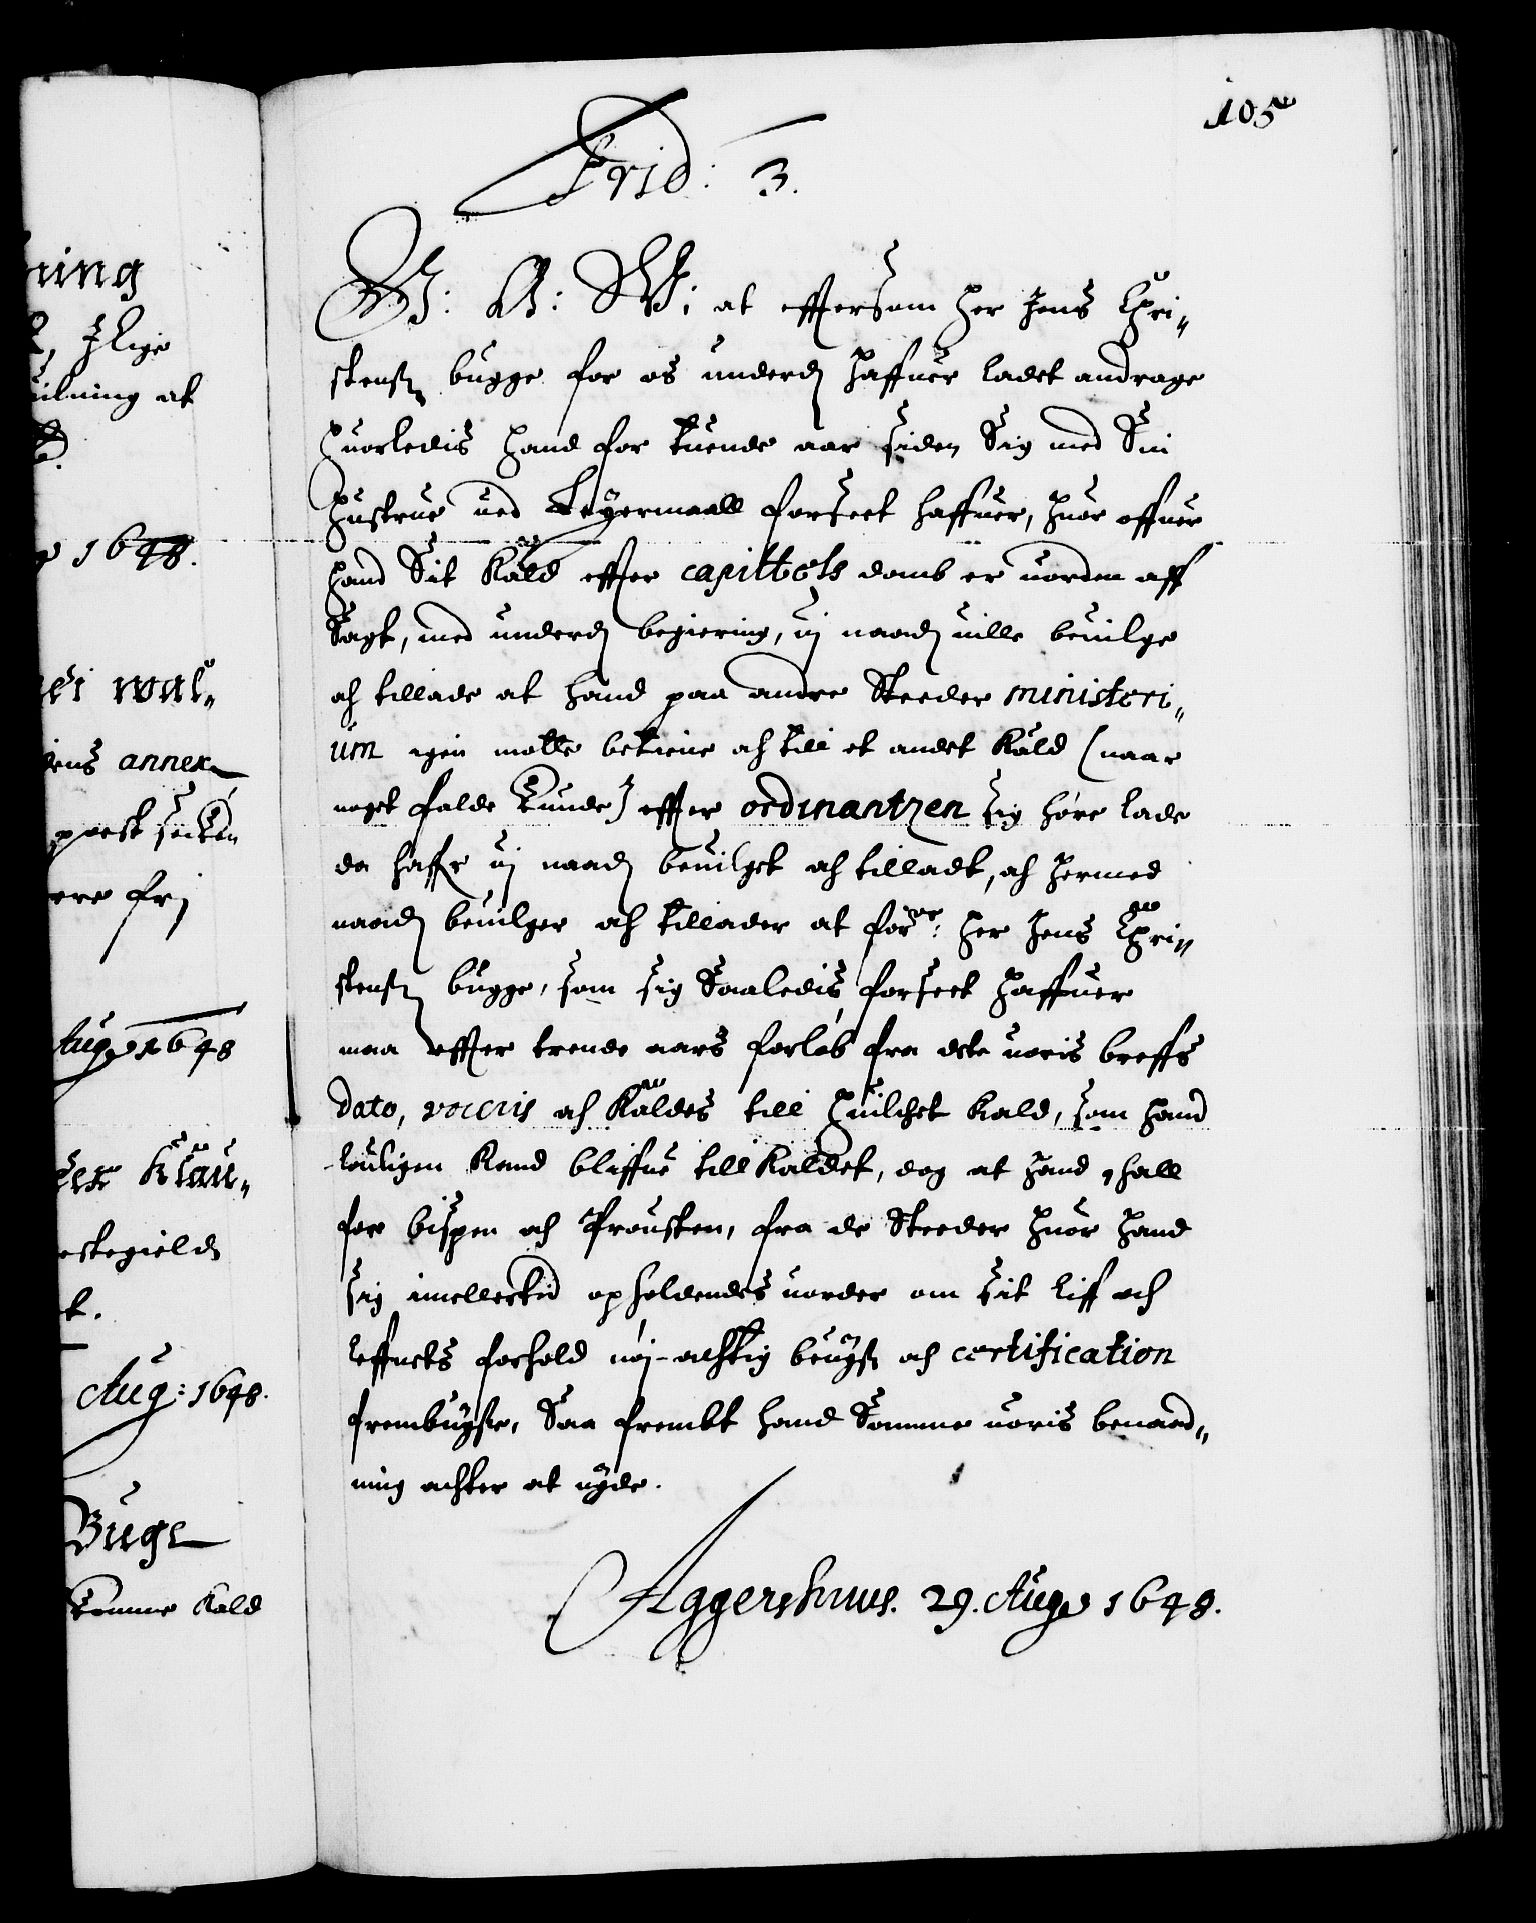 105
Frid: 3.
G: A: W: at effterSom Her Jens Chri„
stensøn bugge for os underd haffuer ladet andrage
huorledis hand for tuende aar siden Sig med Sin
hustrue ued Leyermaall forseet haffuer, huor offuer
hand Sit Kald effter capittels domb er uorden aff
Sagt, med underd begiering, uj naad uille beuilge
och tillade at hand paa andre Steeder ministeri„
um igen motte betiene och till et andet Kald (naar
noget falde Kunde) effter ordinantzen sig høre lade
da haffr uj naad beuilget och tilladt, och hermed
naad beuilger och tillader at forne: Her Jens Chri„
stensøn bugge, som sig Saaledis forseet haffuer
maa effter trende aars forløb fra dete uoris breffs
dato, voceris och Kaldes till huilchet Kald, som hand
louligen Kand bliffue till Kaldet, dog at hand shall
for bispen och Prousten, fra de Steeder huor hand
sig imellertid opholdendes uorder om sit liff och
leffnets forhold nøj-achtig beuyss och certification
frembuyse, Saa frembt hand Samme uoris benaad„
ning achter at nyde.
Aggershuus. 29. Aug 1648.
ning
Jlige
uilning at
1648.
wul„
ens annex
prest
ere frj
Aug 1648
Klau„
estegield
t.
Aug: 1648.
Bugl
Komme Kald